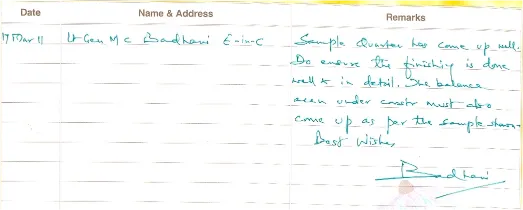 Date Name & Address Remarks
17 Mar 11 Lt Gen M C Badhani E-in-C Sample Quarter has come up well.
Do ensure the finishing is done
well & in detail. The balance
area under constr must also
come up as per the sample shown
Best Wishes
Badhani